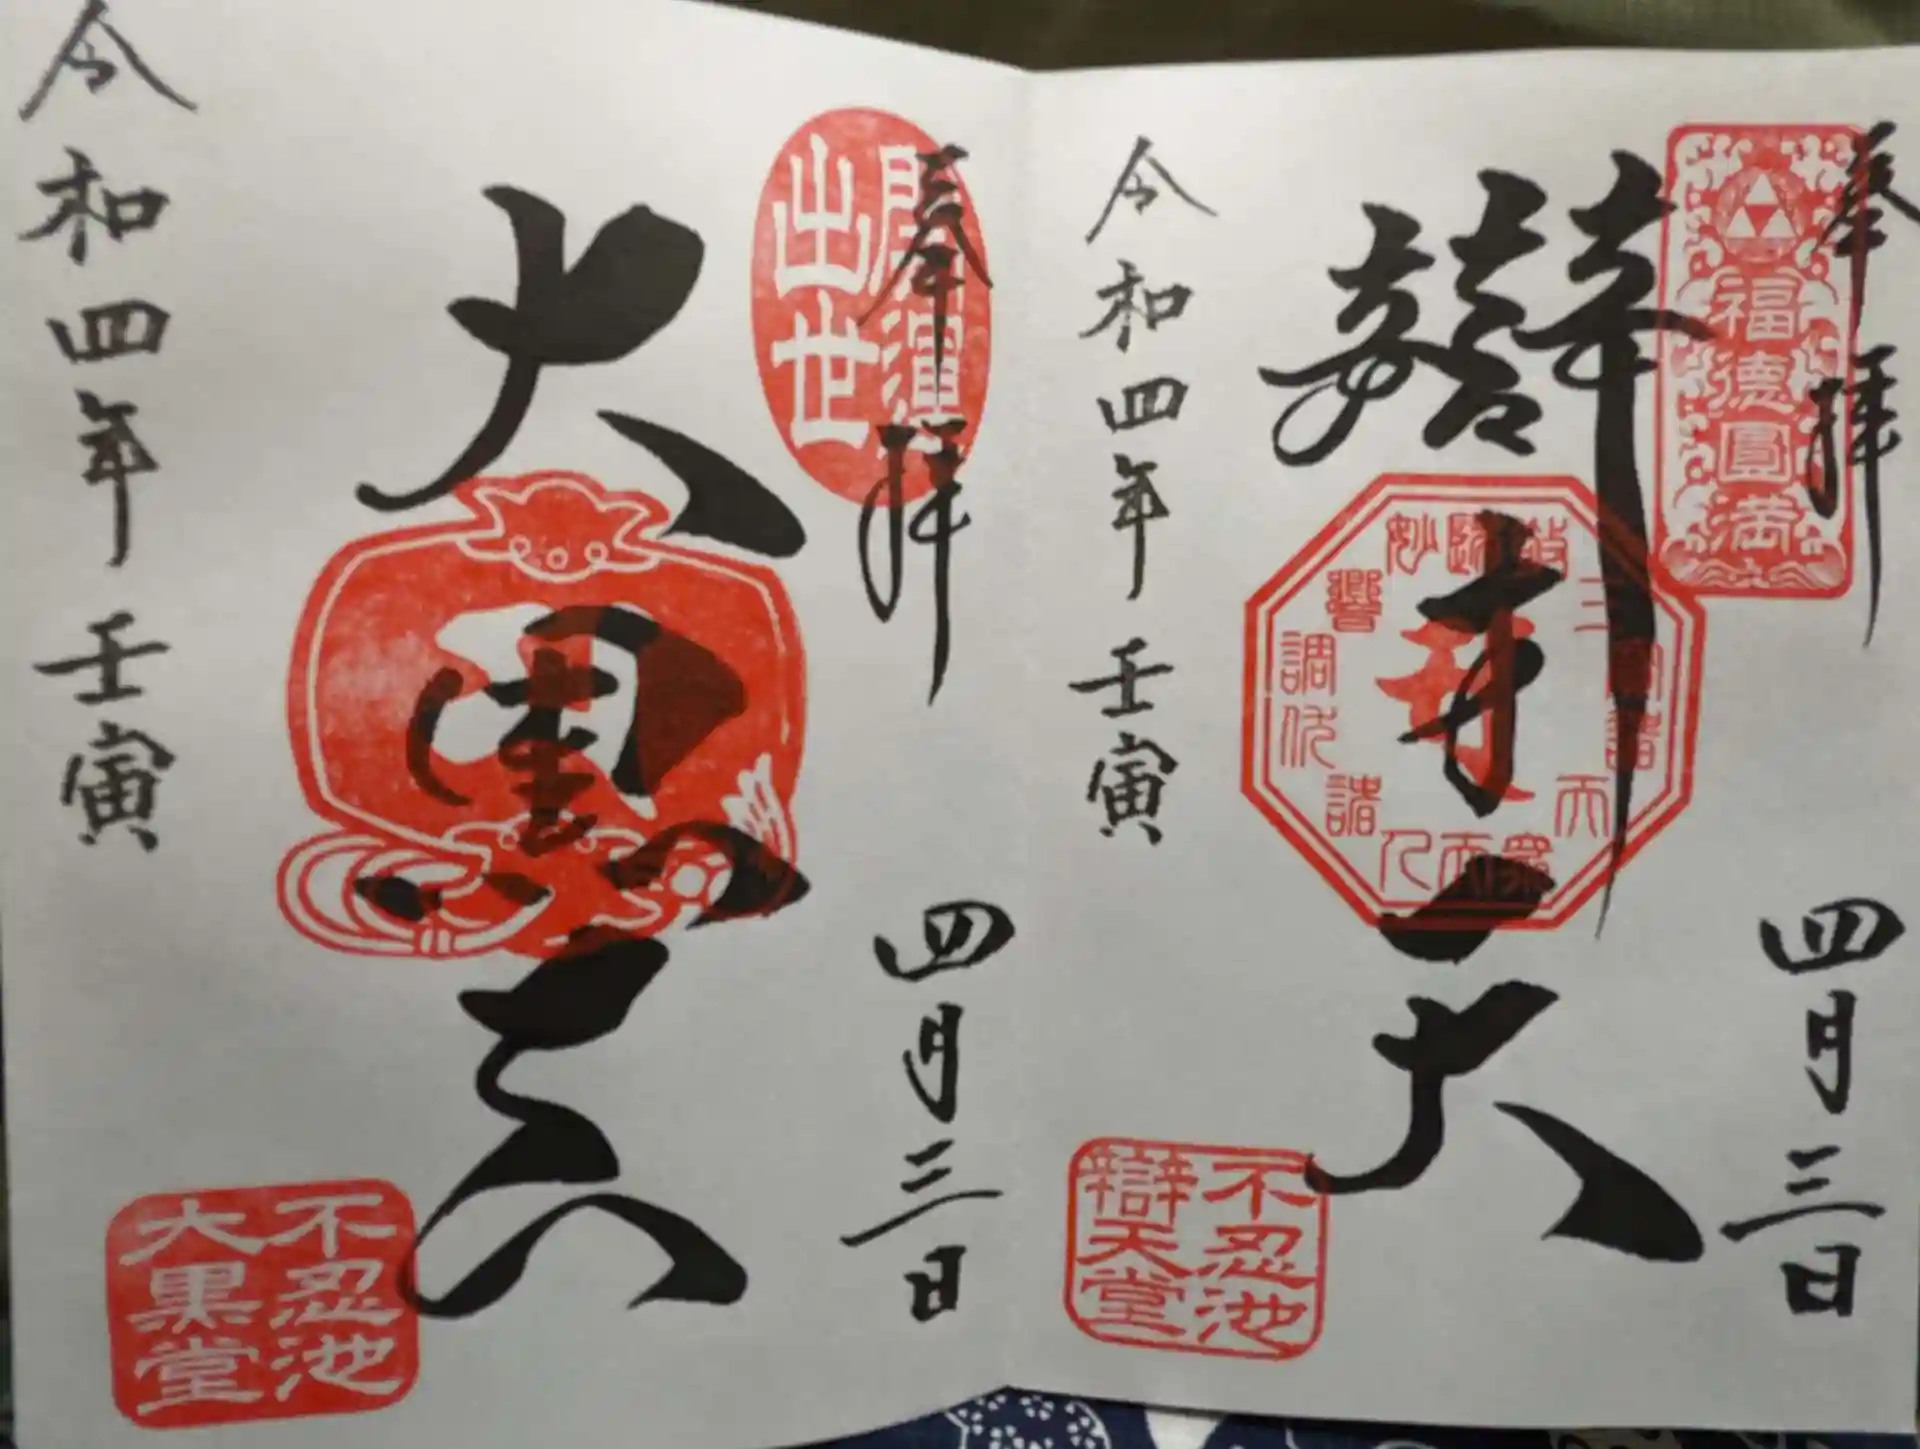 奉拝
福德圓満
辯才天
四月三日
令和四年 壬寅
不忍池
辯天堂
奉拝
開運
出世
大黒天
四月三日
令和四年 壬寅
不忍池
大黒堂